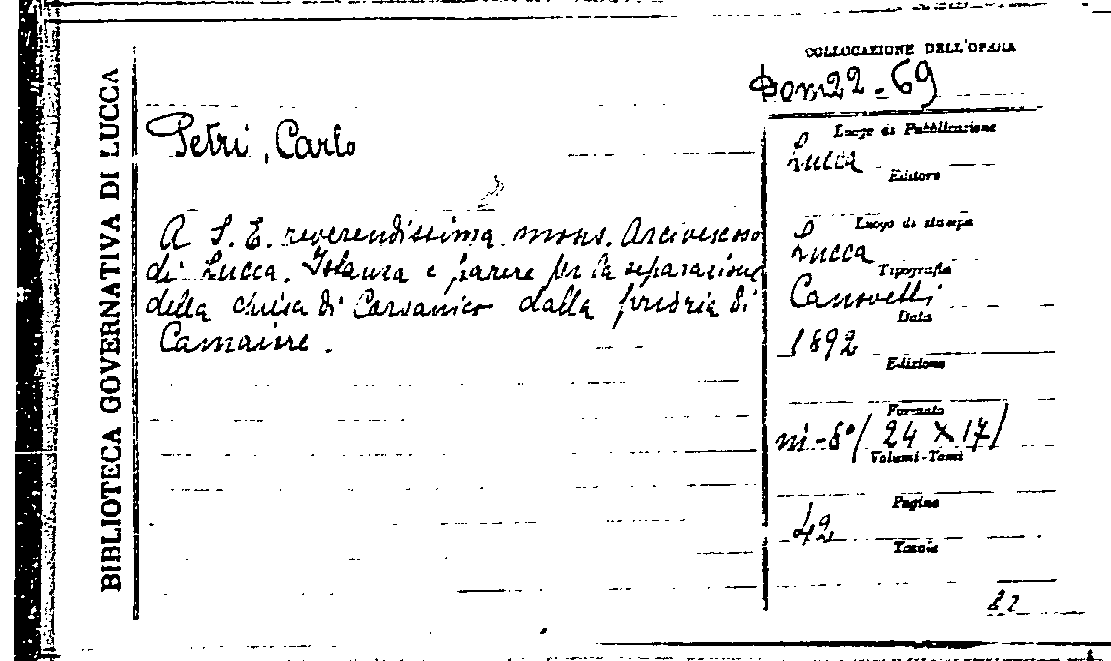 BIBLIOTECA GOVERNATIVA DI LUCCA
COLLOCAZIONE DELL'OPERA
22-69
Petri, Carlo
A S. E. reverendissima mons. Arcivescovo
di Lucca. Istanza e parere per la separazione
della chiesa di Corsanico dalla pieve di
Camaiore.
Luogo di Pubblicazione
Lucca
Editore
Luogo di stampa
Lucca
Tipografia
Canovetti
Data
1892
Edizione
Formato
in-8° (24 x 17)
Volumi-Tomi
Pagine
42
Tavole